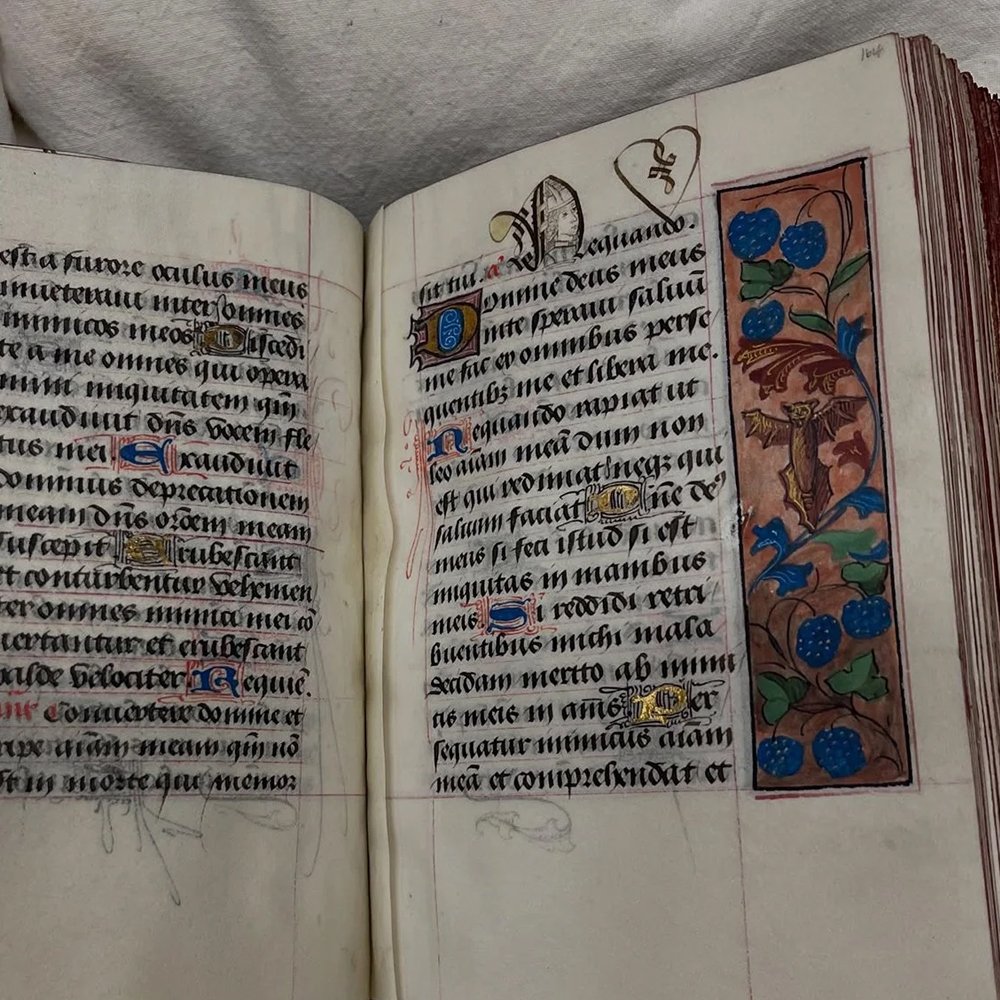 est a furore oculus meus
inueteraui inter omnes
inimicos meos Discedi
te a me omnes qui opera
mini iniquitatem qm̄
exaudiuit dn̄s vocem fle
tus mei. Exaudiuit
dominus deprecationem
meam dn̄s orōem meam
suscepit Erubescant
et conturbentur vehemen
ter omnes inimici mei cō
uertantur et erubescant
valde velociter Requiē.
Conuertere domine et
eripe aīam meam qm̄ nō
est in morte qui memor
164
Nequando.
sit tui. a
Domine deus meus
inte speraui saluū
me fac ex omnibus perse
quentibꝫ me et libera me.
Nequando rapiat ut
leo aīam meā dum non
est qui redimat neqꝫ qui
saluum faciat Dn̄e de
meus si feci istud si est
iniquitas in manibus
meis Si reddidi retri
buentibus michi mala
decidam merito ab inimi
cis meis inanis Per
sequatur inimicus aīam
meā et comprehendat et